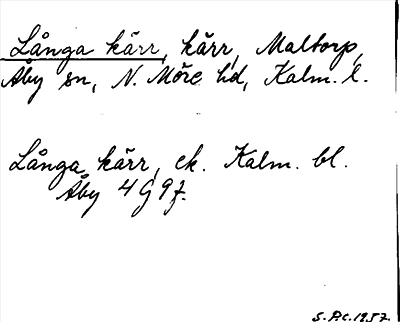 Långa kärr, kärr, Maltorp,
Åby sn, N. Möre hd, Kalm. l.
Långa kärr, ek. Kalm. bl.
Åby 4G9j.
1957.